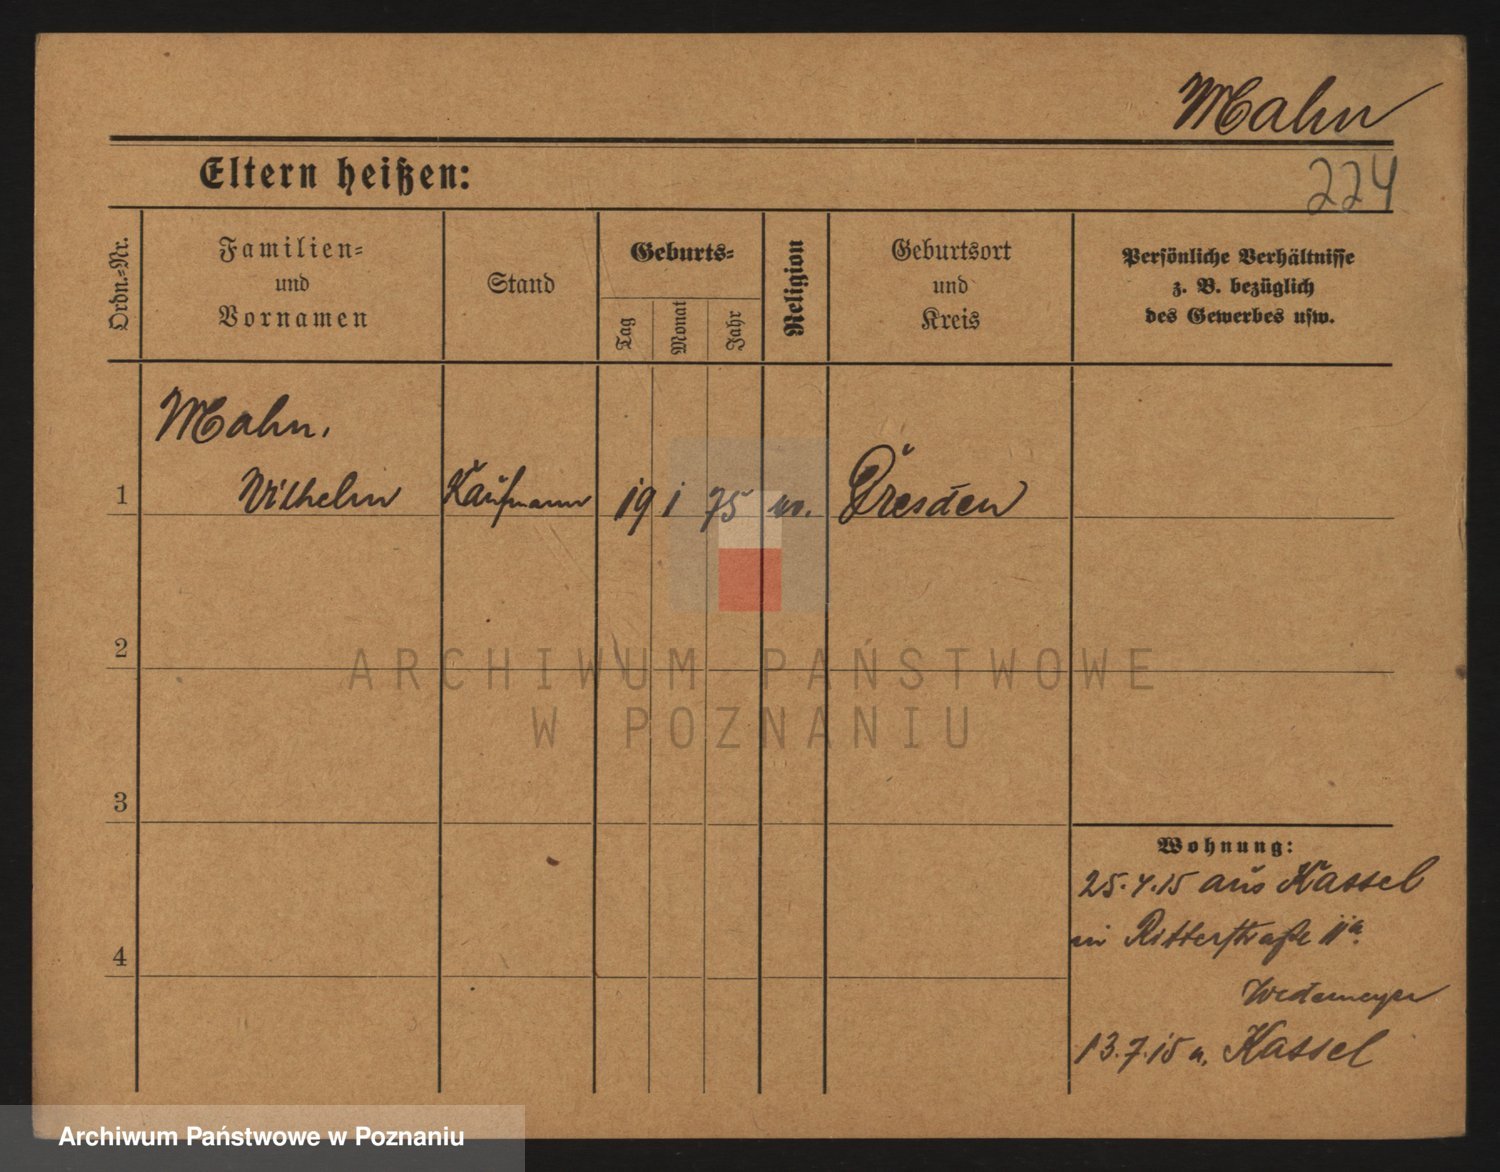 Mahn
224
Eltern heißen:
Ordn.-Nr.
Familien-
und
Vornamen
Stand
Geburts-
Tag
Monat
Jahr
Religion
Geburtsort
und
Kreis
Persönliche Verhältnisse
z. B. bezüglich
des Gewerbes usw.
Mahn.
1 Wilhelm Kaufmann 19 1 75 Dresden
2
3
4
Wohnung:
25.4.15 aus Kassel
in Ritterstraße 11a.
Wedemeyer
13.7.15 n. Kassel
ARCHIWUM PAŃSTWOWE
W POZNANIU
Archiwum Państwowe w Poznaniu